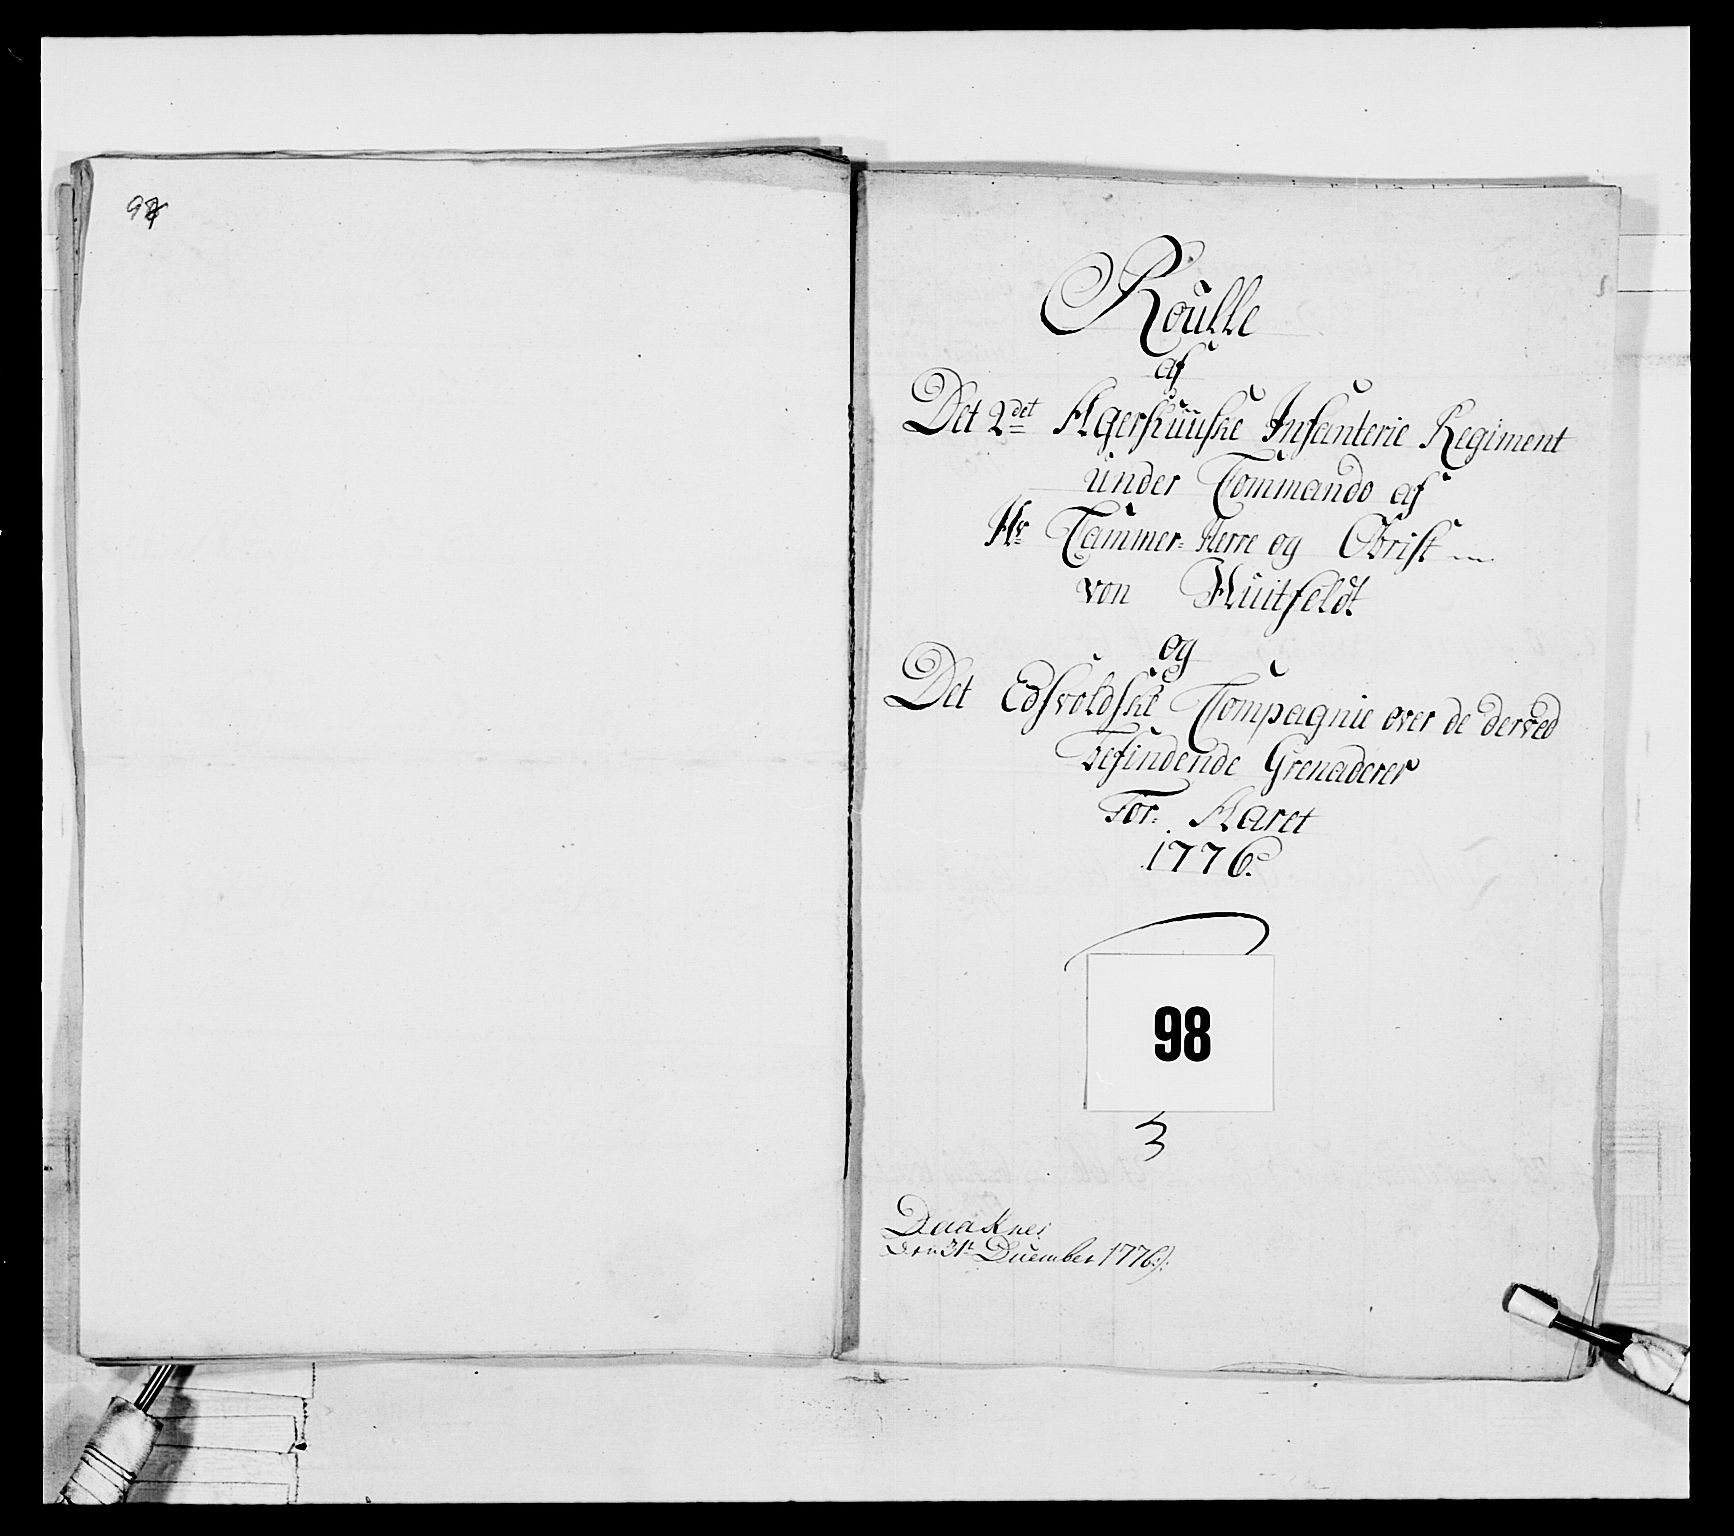 Roulle
af
Det 2det Agerhuuske Infanterie Regiment
under Commando af
Hr Cammer-Herre og Obrist
von Huitfeldt
og
Det Edsvoldske Compagnie over de derved
befindende Grenaderer
For Aaret
1776.
98
3
Daaknei
den 31te December 1776